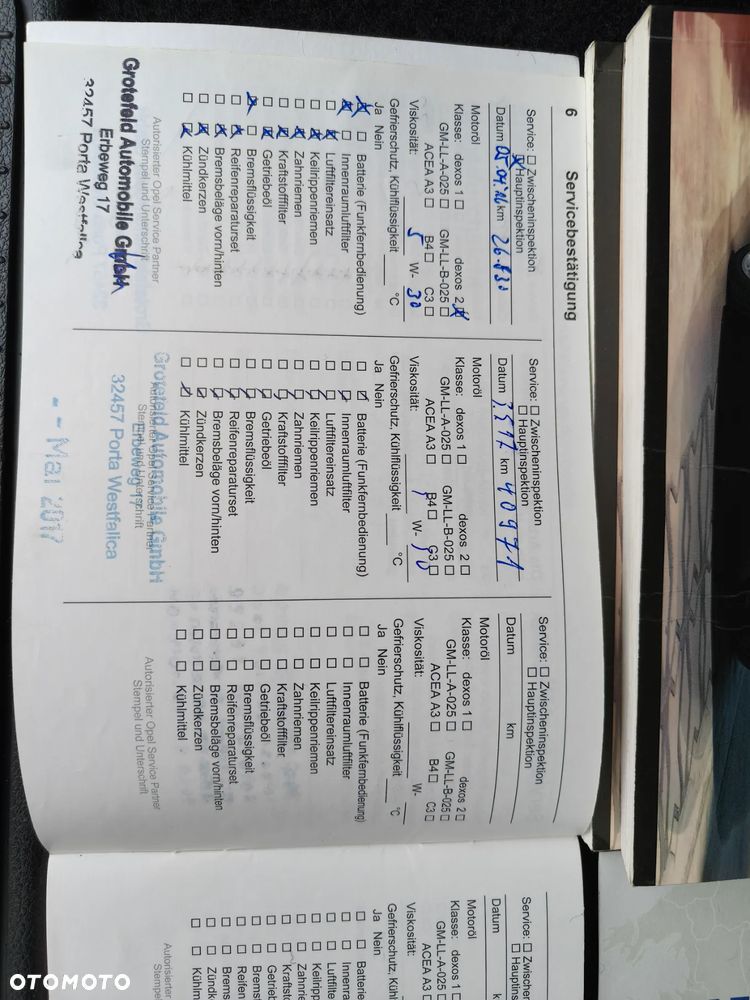 6 Servicebestätigung
Service: Zwischeninspektion
Hauptinspektion
Datum 05.04.16 km 26.830
Motoröl
Klasse: dexos 1 dexos 2
GM-LL-A-025 GM-LL-B-025
ACEA A3 B4 C3
Viskosität: 5 W- 30
Gefrierschutz, Kühlflüssigkeit °C
Ja Nein
Batterie (Funkfernbedienung)
Innenraumluftfilter
Luftfiltereinsatz
Keilrippenriemen
Zahnriemen
Kraftstofffilter
Getriebeöl
Bremsflüssigkeit
Reifenreparaturset
Bremsbeläge vorn/hinten
Zündkerzen
Kühlmittel
Autorisierter Opel Service Partner
Stempel und Unterschrift
Grotefeld Automobile GmbH
Erbeweg 17
32457 Porta Westfalica
Service: Zwischeninspektion
Hauptinspektion
Datum 3.5.17 km 40971
Motoröl
Klasse: dexos 1 dexos 2
GM-LL-A-025 GM-LL-B-025
ACEA A3 B4 C3
Viskosität: W-
Gefrierschutz, Kühlflüssigkeit °C
Ja Nein
Batterie (Funkfernbedienung)
Innenraumluftfilter
Luftfiltereinsatz
Keilrippenriemen
Zahnriemen
Kraftstofffilter
Getriebeöl
Bremsflüssigkeit
Reifenreparaturset
Bremsbeläge vorn/hinten
Zündkerzen
Kühlmittel
Autorisierter Opel Service Partner
Stempel und Unterschrift
Grotefeld Automobile GmbH
Erbeweg 17
32457 Porta Westfalica
- - Mai 2017
Service: Zwischeninspektion
Hauptinspektion
Datum km
Motoröl
Klasse: dexos 1 dexos 2
GM-LL-A-025 GM-LL-B-025
ACEA A3 B4 C3
Viskosität: W-
Gefrierschutz, Kühlflüssigkeit °C
Ja Nein
Batterie (Funkfernbedienung)
Innenraumluftfilter
Luftfiltereinsatz
Keilrippenriemen
Zahnriemen
Kraftstofffilter
Getriebeöl
Bremsflüssigkeit
Reifenreparaturset
Bremsbeläge vorn/hinten
Zündkerzen
Kühlmittel
Autorisierter Opel Service Partner
Stempel und Unterschrift
Service: Zwischeninspektion
Hauptins
Datum
Motoröl
Klasse: dexos 1
GM-LL-A-025
ACEA A3
Viskosität:
Gefrierschutz, Kühl
Ja Nein
Batterie
Innenra
Luftfilte
Keilripp
Zahnri
Kraftsto
Getrieb
Bremsf
Reifen
Brems
Zündk
Kühlm
Autorisierter
Stempe
OTOMOTO